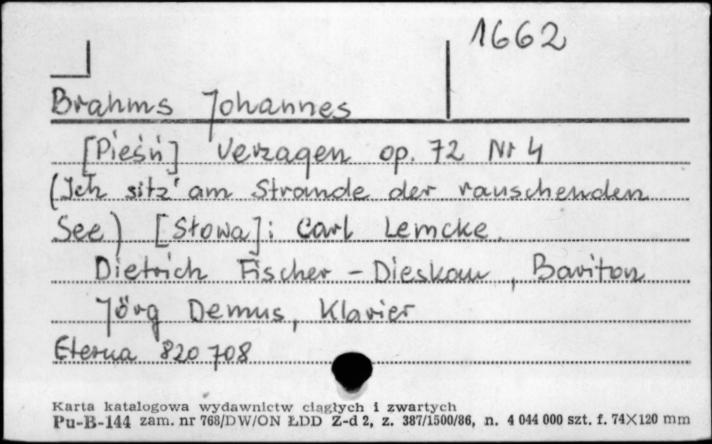 1662
Brahms Johannes
[Pieśń] Verzagen op. 72 Nr 4
(Ich sitz' am Strande der rauschenden
See) [Słowa]: Carl Lemcke.
Dietrich Fischer-Dieskau, Bariton
Jörg Demus, Klavier
Eterna 820 708
Karta katalogowa wydawnictw ciągłych i zwartych
Pu-B-144 zam. nr 768/DW/ON ŁDD Z-d 2, z. 387/1500/86, n. 4 044 000 szt. f. 74×120 mm